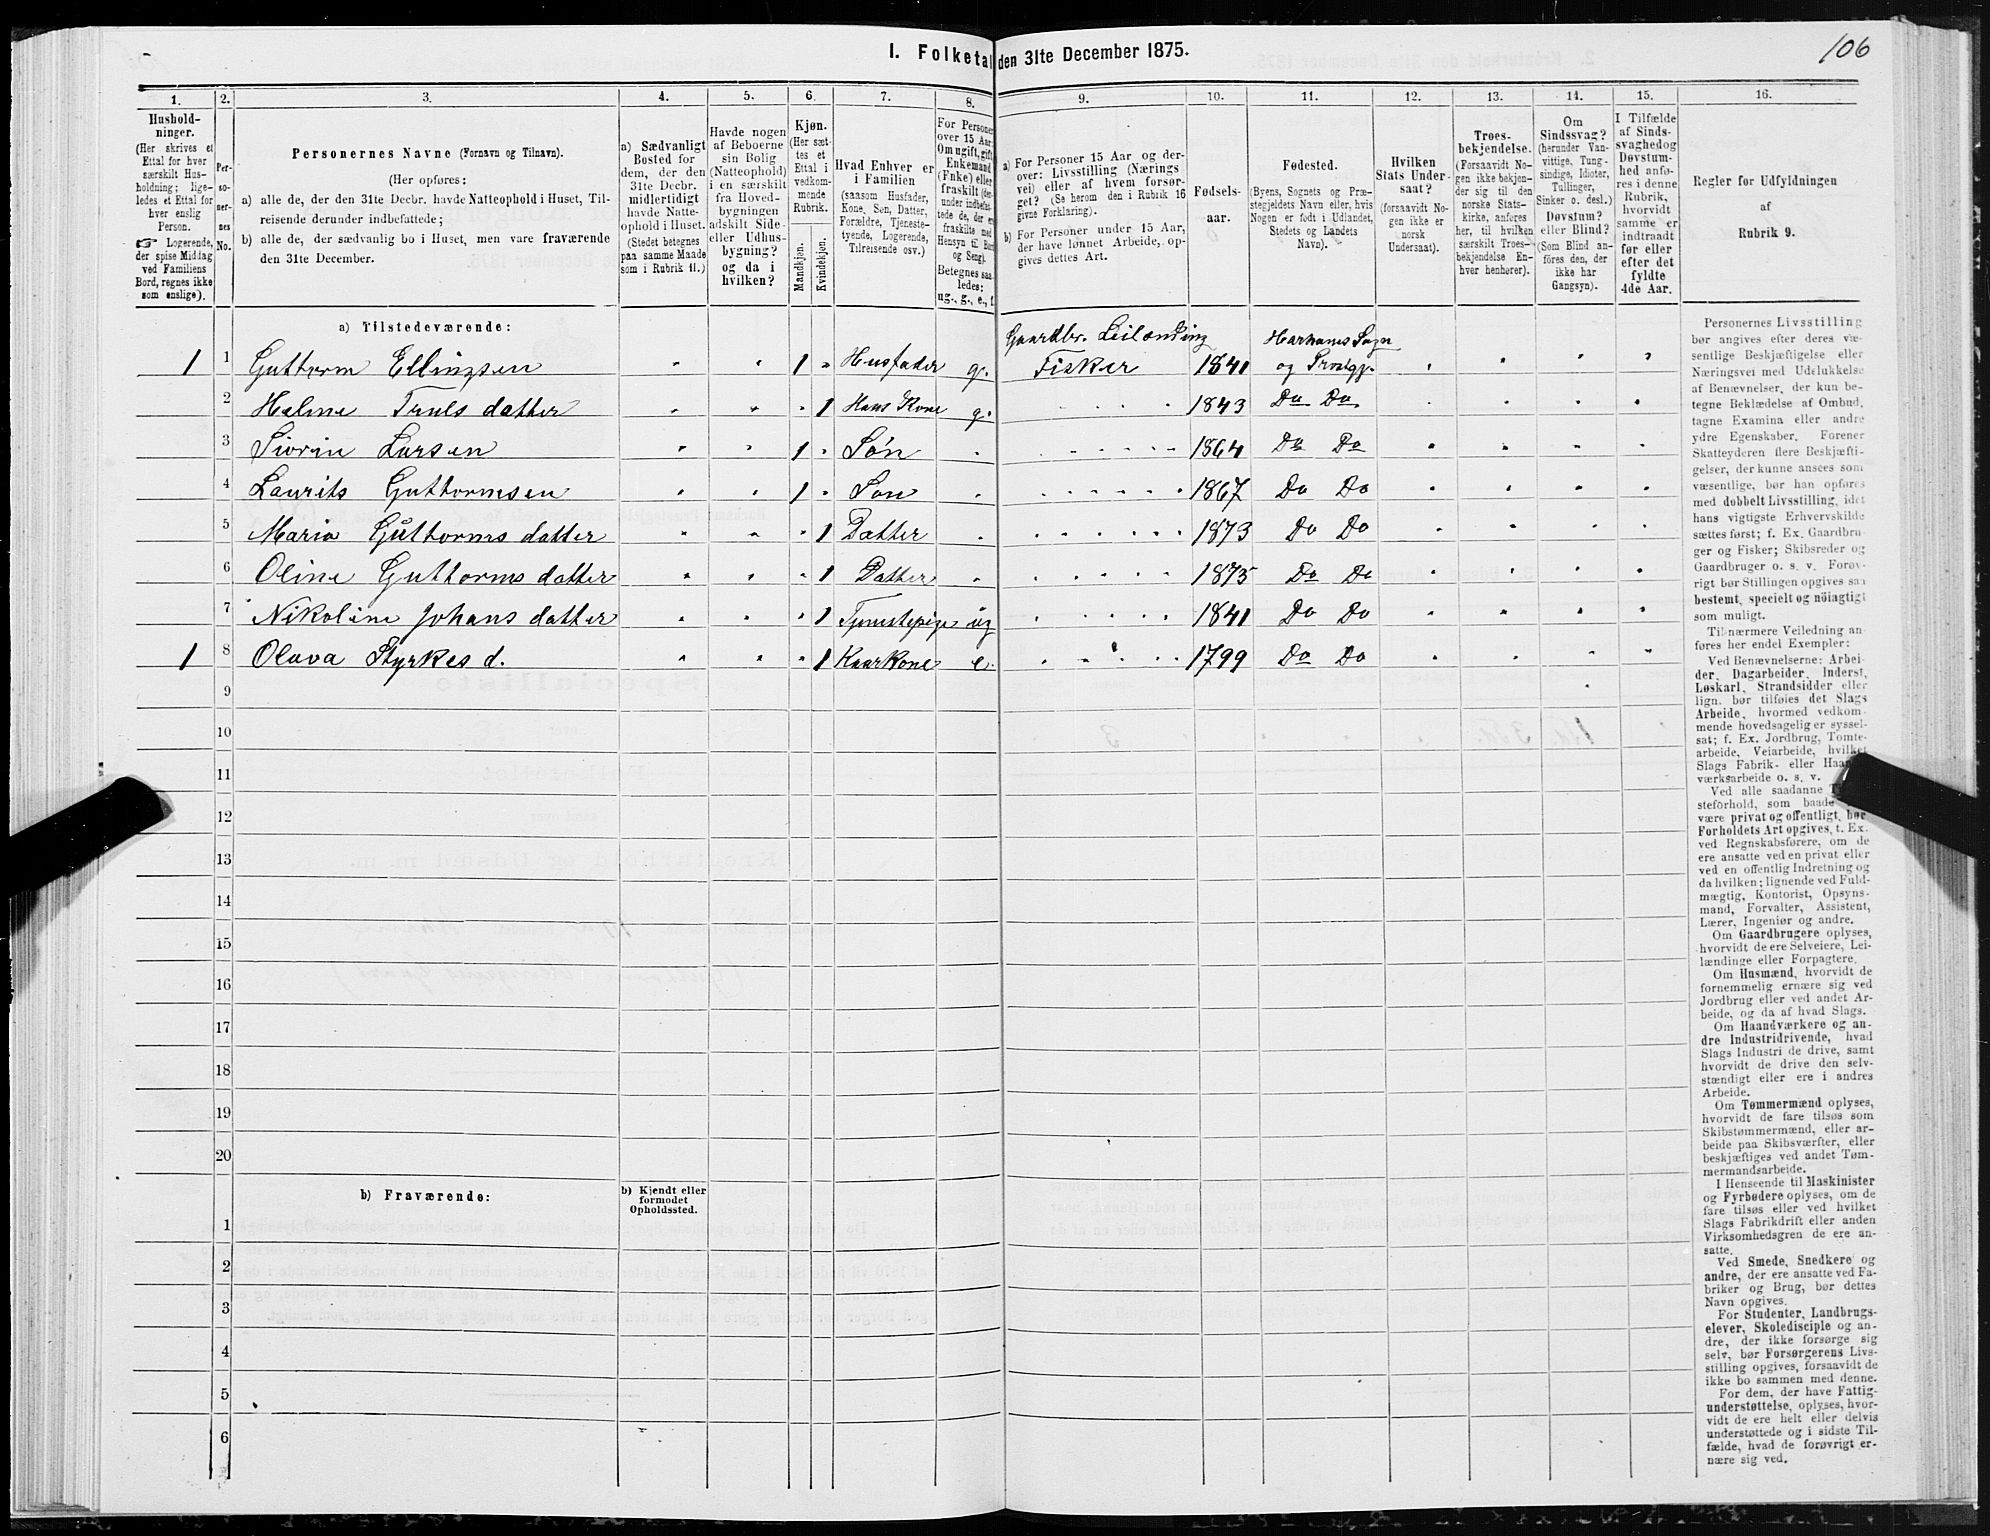 106
I. Folketal den 31te December 1875.
1. 2. 3. 4. 5. 6. 7. 8. 9. 10. 11. 12. 13. 14. 15. 16.
Hushold-
ninger.
(Her skrives et
Ettal for hver
særskilt Hus-
holdning; lige-
ledes et Ettal for
hver enslig
Person.
☞ Logerende,
der spise Middag
ved Familiens
Bord, regnes ikke
som enslige).
Per-
so-
ner-
nes
No.
Personernes Navne (Fornavn og Tilnavn).
(Her opføres:
a) alle de, der den 31te Decbr. havde Natteophold i Huset, Til-
reisende derunder indbefattede;
b) alle de, der sædvanlig bo i Huset, men vare fraværende
den 31te December.
a) Sædvanligt
Bosted for
dem, der den
31te Decbr.
midlertidigt
havde Natte-
ophold i Huset.
(Stedet betegnes
paa samme Maade
som i Rubrik 11.)
Havde nogen
af Beboerne
sin Bolig
(Natteophold)
i en særskilt
fra Hoved-
bygningen
adskilt Side-
eller Udhus-
bygning?
og da i
hvilken?
Kjøn.
(Her sæt-
tes et
Ettal i
vedkom-
mende
Rubrik.
Mandkjøn.
Kvindekjøn.
Hvad Enhver er
i Familien
(saasom Husfader,
Kone, Søn, Datter,
Forældre, Tjeneste-
tyende, Logerende,
Tilreisende osv.)
For Personer
over 15 Aar:
Om ugift, gift,
Enkemand
(Enke) eller
fraskilt (der-
under indbefat-
tede de, der ere
fraskilte med
Hensyn til Bord
og Seng).
Betegnes saa-
ledes:
ug., g., e., f.
a) For Personer 15 Aar og der-
over: Livsstilling (Nærings
vei) eller af hvem forsør-
get? (Se herom den i Rubrik 16
givne Forklaring).
b) For Personer under 15 Aar,
der have lønnet Arbeide, op-
gives dettes Art.
Fødsels-
aar.
Fødested.
(Byens, Sognets og Præ-
stegjeldets Navn eller, hvis
Nogen er født i Udlandet,
Stedets og Landets
Navn).
Hvilken
Stats Under-
saat?
(forsaavidt No-
gen ikke er
norsk
Undersaat).
Troes-
bekjendelse.
(Forsaavidt No-
gen ikke bekjen-
der sig til den
norske Stats-
kirke, anføres
her, til hvilken
særskilt Troes-
bekjendelse En-
hver henhører).
Om
Sindssvag?
(herunder Van-
vittige, Tung-
sindige, Idioter,
Tullinger,
Sinker o. desl.)
Døvstum?
eller Blind?
(Som Blind an-
føres den, der
ikke har
Gangsyn).
I Tilfælde
af Sinds-
svaghed og
Døvstum-
hed anfø-
res i denne
Rubrik,
hvorvidt
samme er
indtraadt
før eller
efter det
fyldte
4de Aar.
Regler for Udfyldningen
af
Rubrik 9.
a) Tilstedeværende:
Gaardbr. Leilænding Harhams Sogn
1 1 Guttorm Ellingsen " " 1 " Husfader g. Fisker 1841 og Prstgj. " " " "
2 Halme Truls datter " " " 1 Hans Kone g. 1843 Do Do " " " "
3 Siorin Larsen " " 1 " Søn " 1864 Do Do " " " "
4 Laurits Guttormsen " " 1 " Søn " 1867 Do Do " " " "
5 Maria Guttorms datter " " " 1 Datter " 1873 Do Do " " " "
6 Oline Guttorms datter " " " 1 Datter " 1875 Do Do " " " "
7 Nikoline Johans datter " " " 1 Tjenstepige ug 1841 Do Do " " " "
1 8 Olava Styrkes d. " " " 1 Kaarkone e. 1799 Do Do " " " "
9
10
11
12
13
14
15
16
17
18
19
20
b) Fraværende:
b) Kjendt eller
formodet
Opholdssted.
1
2
3
4
5
6
Personernes Livsstilling
bør angives efter deres væ-
sentlige Beskjæftigelse eller
Næringsvei med Udelukkelse
af Benævnelser, der kun be-
tegne Beklædelse af Ombud,
tagne Examina eller andre
ydre Egenskaber. Forener
Skatteyderen flere Beskjæfti-
gelser, der kunne ansees som
væsentlige, bør han opføres
med dobbelt Livsstilling, idet
hans vigtigste Erhvervskilde
sættes først; f. Ex. Gaardbru-
ger og Fisker; Skibsreder og
Gaardbruger o. s. v. Forøv-
rigt bør Stillingen opgives saa
bestemt, specielt og nöiagtigt
som muligt.
Til nærmere Veiledning an-
føres her endel Exempler:
Ved Benævnelserne: Arbei-
der, Dagarbeider, Inderst,
Løskarl, Strandsidder eller
lign. bør tilføies det Slags
Arbeide, hvormed vedkom-
mende hovedsagelig er syssel-
sat; f. Ex. Jordbrug, Tomte-
arbeide, Veiarbeide, hvilket
Slags Fabrik- eller Haand-
værksarbeide o. s. v.
Ved alle saadanne
steforhold, som baade
være privat og offentligt, bør
Forholdets Art opgives, t. Ex.
ved Regnskabsførere, om de
ere ansatte ved en privat eller
ved en offentlig Indretning og
da hvilken; lignende ved Fuld-
mægtig, Kontorist, Opsyns-
mand, Forvalter, Assistent,
Lærer, Ingeniør og andre.
Om Gaardbrugere oplyses,
hvorvidt de ere Selveiere, Lei-
lændinge eller Forpagtere.
Om Husmænd, hvorvidt de
fornemmelig ernære sig ved
Jordbrug eller ved andet Ar-
beide, og da af hvad Slags.
Om Haandværkere og an-
dre Industridrivende, hvad
Slags Industri de drive, samt
hvorvidt de drive den selv-
stændigt eller ere i andres
Arbeide.
Om Tømmermænd oplyses,
hvorvidt de fare tilsøs som
Skibstømmermænd, eller ar-
beide paa Skibsværfter, eller
beskjæftiges ved andet Tøm-
mermandsarbeide.
I Henseende til Maskinister
og Fyrbødere oplyses, om de
fare tilsøs eller ved hvilket
Slags Fabrikdrift eller anden
Virksomhedsgren de ere an-
satte.
Ved Smede, Snedkere og
andre, der ere ansatte ved Fa-
briker og Brug, bør dettes
Navn opgives.
For Studenter, Landbrugs-
elever, Skoledisciple og an-
dre, der ikke forsørge sig
selv, bør Forsørgerens Livs-
stilling opgives, forsaavidt de
ikke bo sammen med denne.
For dem, der have Fattig-
understøttelse, oplyses, hvor-
vidt de ere helt eller delvis
understøttede og i sidste Til-
fælde, hvad de forøvrigt er-
nære sig ved.